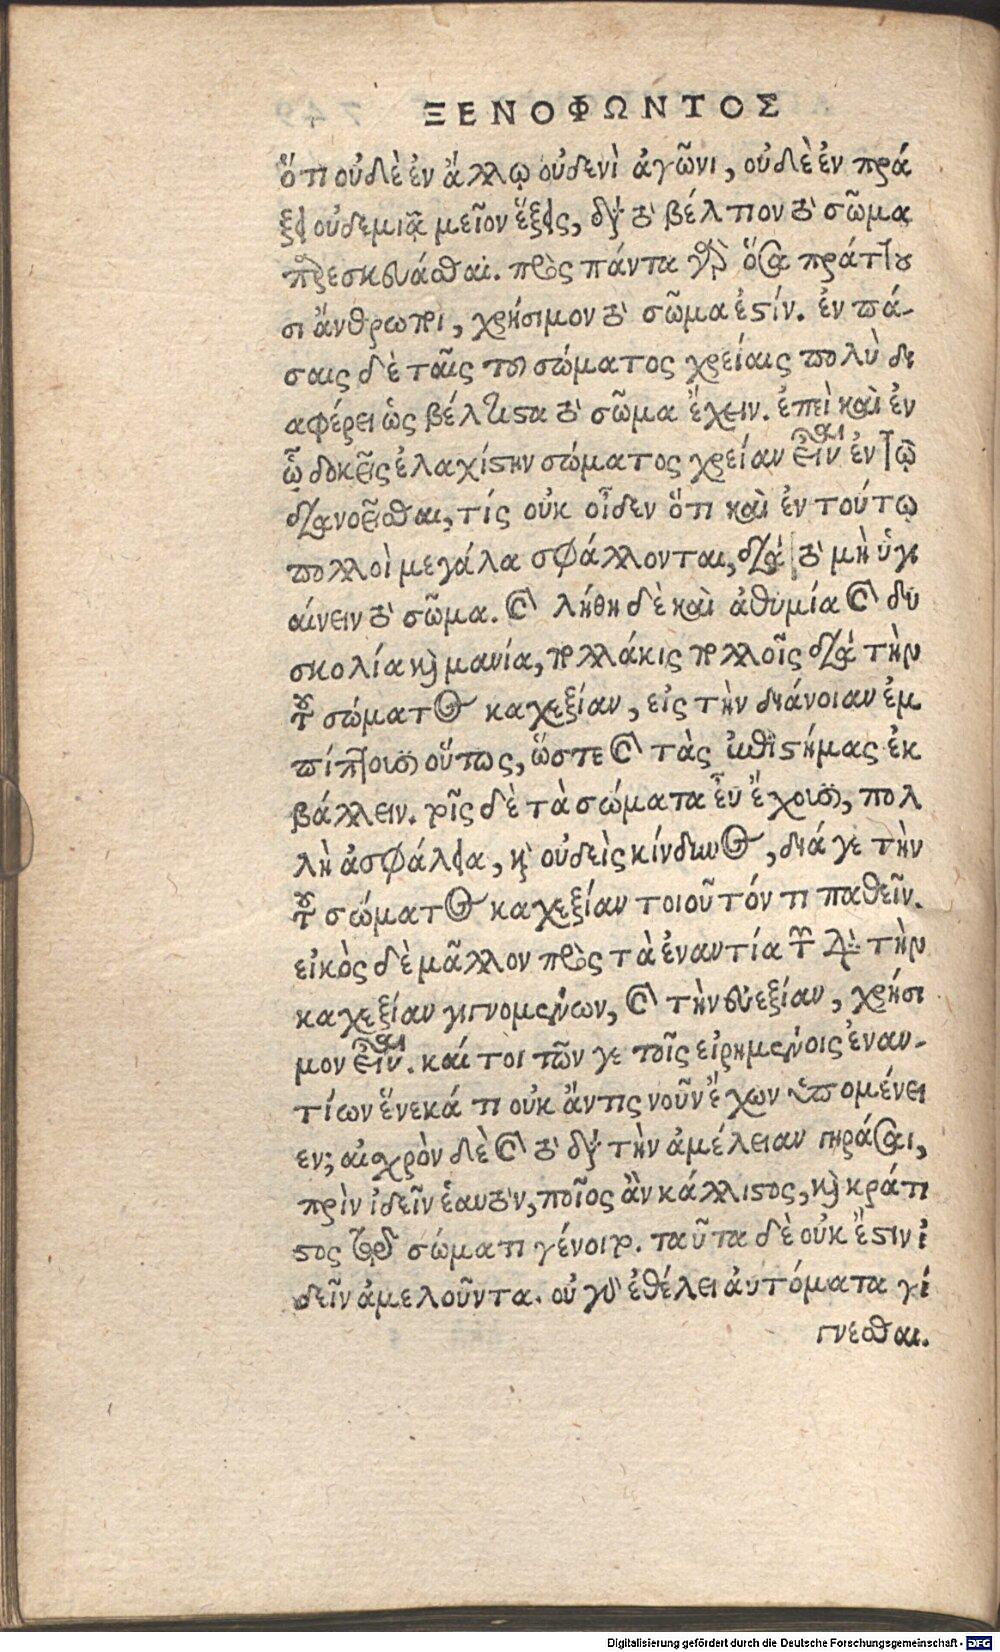 ΞΕΝΟΦΩΝΤΟΣ
ὅτι οὐδὲ ἐν ἄλλῳ οὐδενὶ ἀγῶνι, οὐδὲ ἐν πρά
ξει οὐδεμιᾷ μεῖον ἕξεις, διὰ τὸ βέλτιον τὸ σῶμα
παρεσκευάσθαι. πρὸς πάντα γὰρ ὅσα πράττου
σι ἄνθρωποι, χρήσιμον τὸ σῶμα ἐστίν. ἐν πά-
σαις δὲ ταῖς τοῦ σώματος χρείαις πολὺ δι
αφέρει ὡς βέλτιστα τὸ σῶμα ἔχειν. ἐπεὶ καὶ ἐν
ᾧ δοκεῖς ἐλαχίστην σώματος χρείαν εἶναι ἐν τῷ
διανοεῖσθαι, τίς οὐκ οἶδεν ὅτι καὶ ἐν τούτῳ
πολλοὶ μεγάλα σφάλλονται, διὰ τὸ μὴ ὑγι
αίνειν τὸ σῶμα. καὶ λήθη δὲ καὶ ἀθυμία καὶ δυ
σκολία καὶ μανία, πολλάκις πολλοῖς διὰ τὴν
τοῦ σώματος καχεξίαν, εἰς τὴν διάνοιαν ἐμ
πίπτουσιν οὕτως, ὥστε καὶ τὰς ἐπιστήμας ἐκ
βάλλειν. τοῖς δὲ τὰ σώματα εὖ ἔχουσι, πολ
λὴ ἀσφάλεια, καὶ οὐδεὶς κίνδυνος, διά γε τὴν
τοῦ σώματος καχεξίαν τοιοῦτόν τι παθεῖν.
εἰκὸς δὲ μᾶλλον πρὸς τὰ ἐναντία τῶν διὰ τὴν
καχεξίαν γιγνομένων, καὶ τὴν εὐεξίαν, χρήσι
μον εἶναι. καί τοι τῶν γε τοῖς εἰρημένοις ἐναν-
τίων ἕνεκά τι οὐκ ἄν τις νοῦν ἔχων ὑπομένει
εν; αἰσχρὸν δὲ καὶ τὸ διὰ τὴν ἀμέλειαν γηρᾶσαι,
πρὶν ἰδεῖν ἑαυτὸν, ποῖος ἂν κάλλιστος, καὶ κράτι
στος τῷ σώματι γένοιτο. ταῦτα δὲ οὐκ ἔστιν ἰ
δεῖν ἀμελοῦντα. οὐ γὰρ ἐθέλει αὐτόματα γί
γνεσθαι.
Digitalisierung gefördert durch die Deutsche Forschungsgemeinschaft - DFG